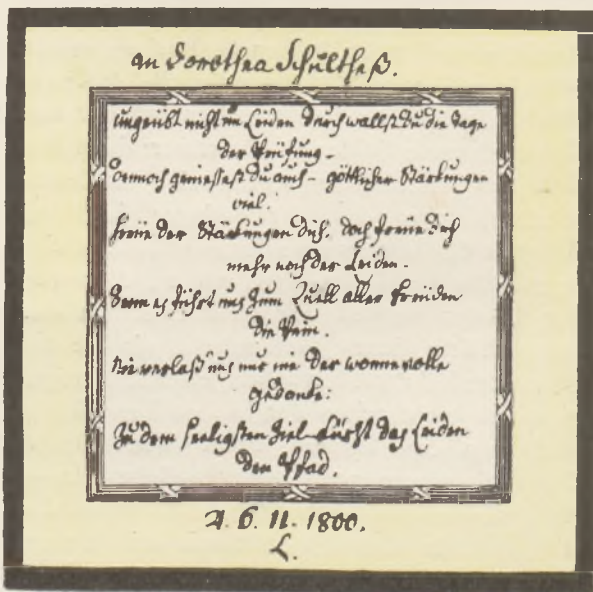 An Dorothea Schultheß.
Ungeübt nicht im Leiden durchwallst du die Tage
der Prüfung –
Dennoch genießest du auch – göttlicher Stärkungen
viel.
Freüe der Stärkungen dich. doch freüe dich
mehr noch der Leiden.
Denn es führt uns zum Quell aller Freüden
die Pein.
Nie verlaß uns nur nie der wonnevolle
Gedanke:
Zu dem seeligsten Ziel das Leiden
den Pfad.
6. 11. 1800.
L.